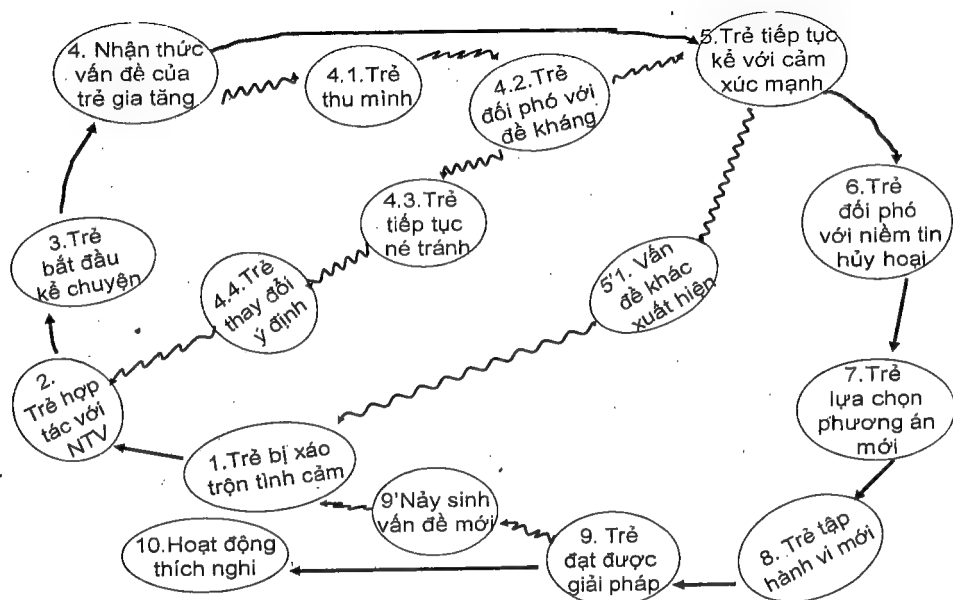 4. Nhận thức
vấn đề của
trẻ gia tăng
4.1.Trẻ
thu mình
4.2.Trẻ
đối phó với
đề kháng
5.Trẻ tiếp tục
kể với cảm
xúc mạnh
4.3.Trẻ
tiếp tục
né tránh
6.Trẻ
đối phó
với niềm tin
hủy hoại
3.Trẻ
bắt đầu
kể chuyện
4.4.Trẻ
thay đổi
ý định
5'1. Vấn
đề khác
xuất hiện
2.
Trẻ hợp
tác với
NTV
7.Trẻ
lựa chọn
phương án
mới
1.Trẻ bị xáo
trộn tình cảm
9'Nảy sinh
vấn đề mới
8. Trẻ tập
hành vi mới
10.Hoạt động
thích nghi
9. Trẻ
đạt được
giải pháp